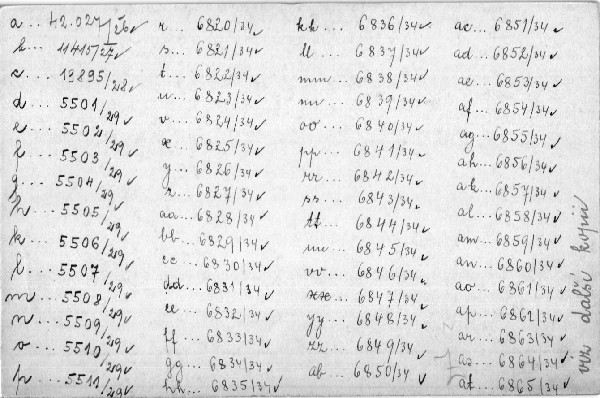 a... 42.027/26✓
b... 11415/27✓
c... 13895/28✓
d... 5501/29✓
e... 5502/29✓
f... 5503/29✓
g... 5504/29✓
h... 5505/29✓
k... 5506/29✓
l... 5507/29✓
m... 5508/29✓
n... 5509/29✓
o... 5510/29✓
p... 5511/29✓
r... 6820/34✓
s... 6821/34✓
t... 6822/34✓
u... 6823/34✓
v... 6824/34✓
x... 6825/34✓
y... 6826/34✓
z... 6827/34✓
aa... 6828/34✓
bb... 6829/34✓
cc... 6830/34✓
dd... 6831/34✓
ee... 6832/34✓
ff... 6833/34✓
gg... 6834/34✓
hh... 6835/34✓
kk... 6836/34✓
ll... 6837/34✓
mm... 6838/34✓
nn... 6839/34✓
oo... 6840/34✓
pp... 6841/34✓
rr... 6842/34✓
ss... 6843/34✓
tt... 6844/34✓
uu... 6845/34✓
vv... 6846/34✓
xx... 6847/34✓
yy... 6848/34✓
zz... 6849/34✓
ab... 6850/34✓
ac... 6851/34✓
ad... 6852/34✓
ae... 6853/34✓
af... 6854/34✓
ag... 6855/34✓
ah... 6856/34✓
ak... 6857/34✓
al... 6858/34✓
am... 6859/34✓
an... 6860/34✓
ao... 6861/34✓
ap... 6862/34✓
ar... 6863/34✓
as... 6864/34✓
at... 6865/34✓
viz další kopii